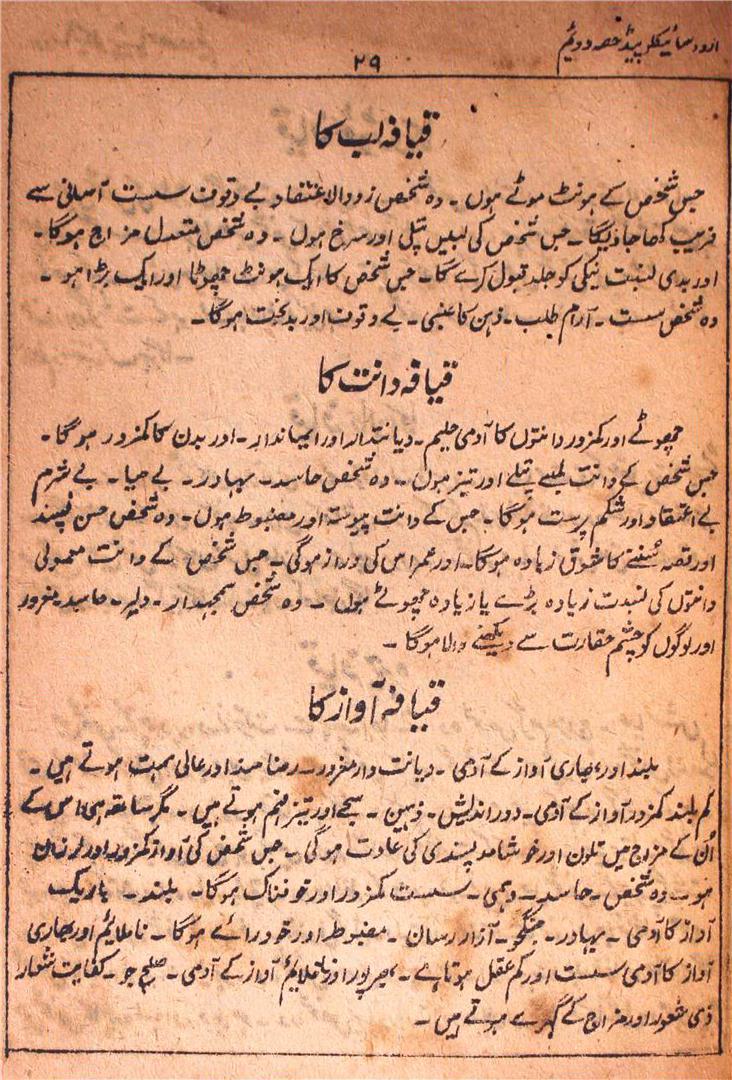 اردو سائیکلوپیڈ حصہ دوئم
۲۹
قیافہ لب کا
جس شخص کے ہونٹ موٹے ہوں ۔ وہ شخص زودالاعتقاد بے وقوف سست آسانی سے
فریب کھا جاویگا ۔ جس شخص کی لبیں پتلی اور سرخ ہوں ۔ وہ شخص معتدل مزاج ہوگا ۔
اور بدی نسبت نیکی کو جلد قبول کرے گا ۔ جس شخص کا ایک ہونٹ چھوٹا اور ایک بڑا ہو ۔
وہ شخص سست ۔ آرام طلب ۔ ذہن کا غبی ۔ بے وقوف اور بدبخت ہوگا ۔
قیافہ دانت کا
چھوٹے اور کمزور دانتوں کا آدمی حلیم ۔ دیانتدار اور ایماندار ۔ اور بدن کا کمزور ہوگا ۔
جس شخص کے دانت لمبے پتلے اور تیز ہوں ۔ وہ شخص حاسد ۔ بہادر ۔ بے حیا ۔ بے شرم
بے اعتقاد اور شکم پرست ہوگا ۔ جس کے دانت پیوستہ اور مضبوط ہوں ۔ وہ شخص حسن پسند
اور قصہ سننے کا شوق زیادہ ہوگا ۔ اور عمر اس کی دراز ہوگی ۔ جس شخص کے دانت معمولی
دانتوں کی نسبت زیادہ بڑے یا زیادہ چھوٹے ہوں ۔ وہ شخص سمجھدار ۔ دلیر ۔ حاسد مغرور
اور لوگوں کو چشم حقارت سے دیکھنے والا ہوگا ۔
قیافہ آواز کا
بلند اور بھاری آواز کے آدمی ۔ دیانت دار مغرور ۔ رضامند اور عالی ہمت ہوتے ہیں ۔
کم بلند کمزور آواز کے آدمی ۔ دور اندیش ۔ ذہین ۔ سچے اور تیز فہم ہوتے ہیں ۔ مگر ساتھ ہی اس کے
اُن کے مزاج میں تلون اور خوشامد پسندی کی عادت ہوگی ۔ جس شخص کی آواز کمزور اور لرزاں
ہو ۔ وہ شخص ۔ حاسد ۔ وہمی ۔ سست کمزور اور خوفناک ہوگا ۔ بلند ۔ باریک
آواز کا آدمی ۔ بہادر ۔ جنگجو ۔ آزار رساں ۔ مضبوط اور خود رائے ہوگا ۔ ناملائم اور بھاری
آواز کا آدمی سست اور کم عقل ہوتا ہے ۔ بھرپور اور ناملائم آواز کے آدمی ۔ صلح جو ۔ کفایت شعار
ذی شعور اور مزاج کے گہرے ہوتے ہیں ۔